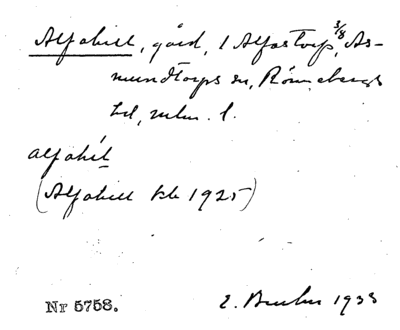 Alfohill, gård, 1 Alfastorp, 3/8, As-
mundtorps sn, Rönnebergs
hd, mlm. l.
alfohil
(Alfohill kb 1925)
Nr 5758. 1933